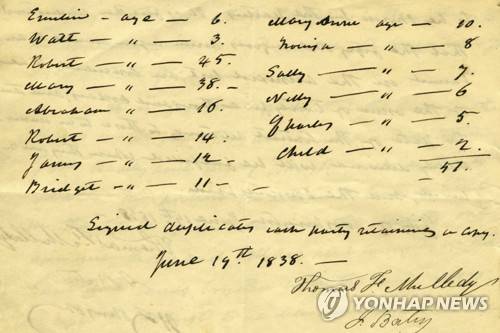 Emelin — age — 6.
Watt — " — 3.
Robert — " — 45.
Mary — " — 38. —
Abraham — " — 16.
Robert — " — 14.
James — " — 12 —
Bridget — " — 11 — —
Mary Anne age — 10.
Louisa — " — 8
Sally — " — 7.
Nelly — " — 6
Charles — " — 5.
Child — " — 2.
51.
Signed duplicates each party retaining a copy.
June 19th 1838. —
Thomas F. Mulledy
J. Batey
YONHAP NEWS